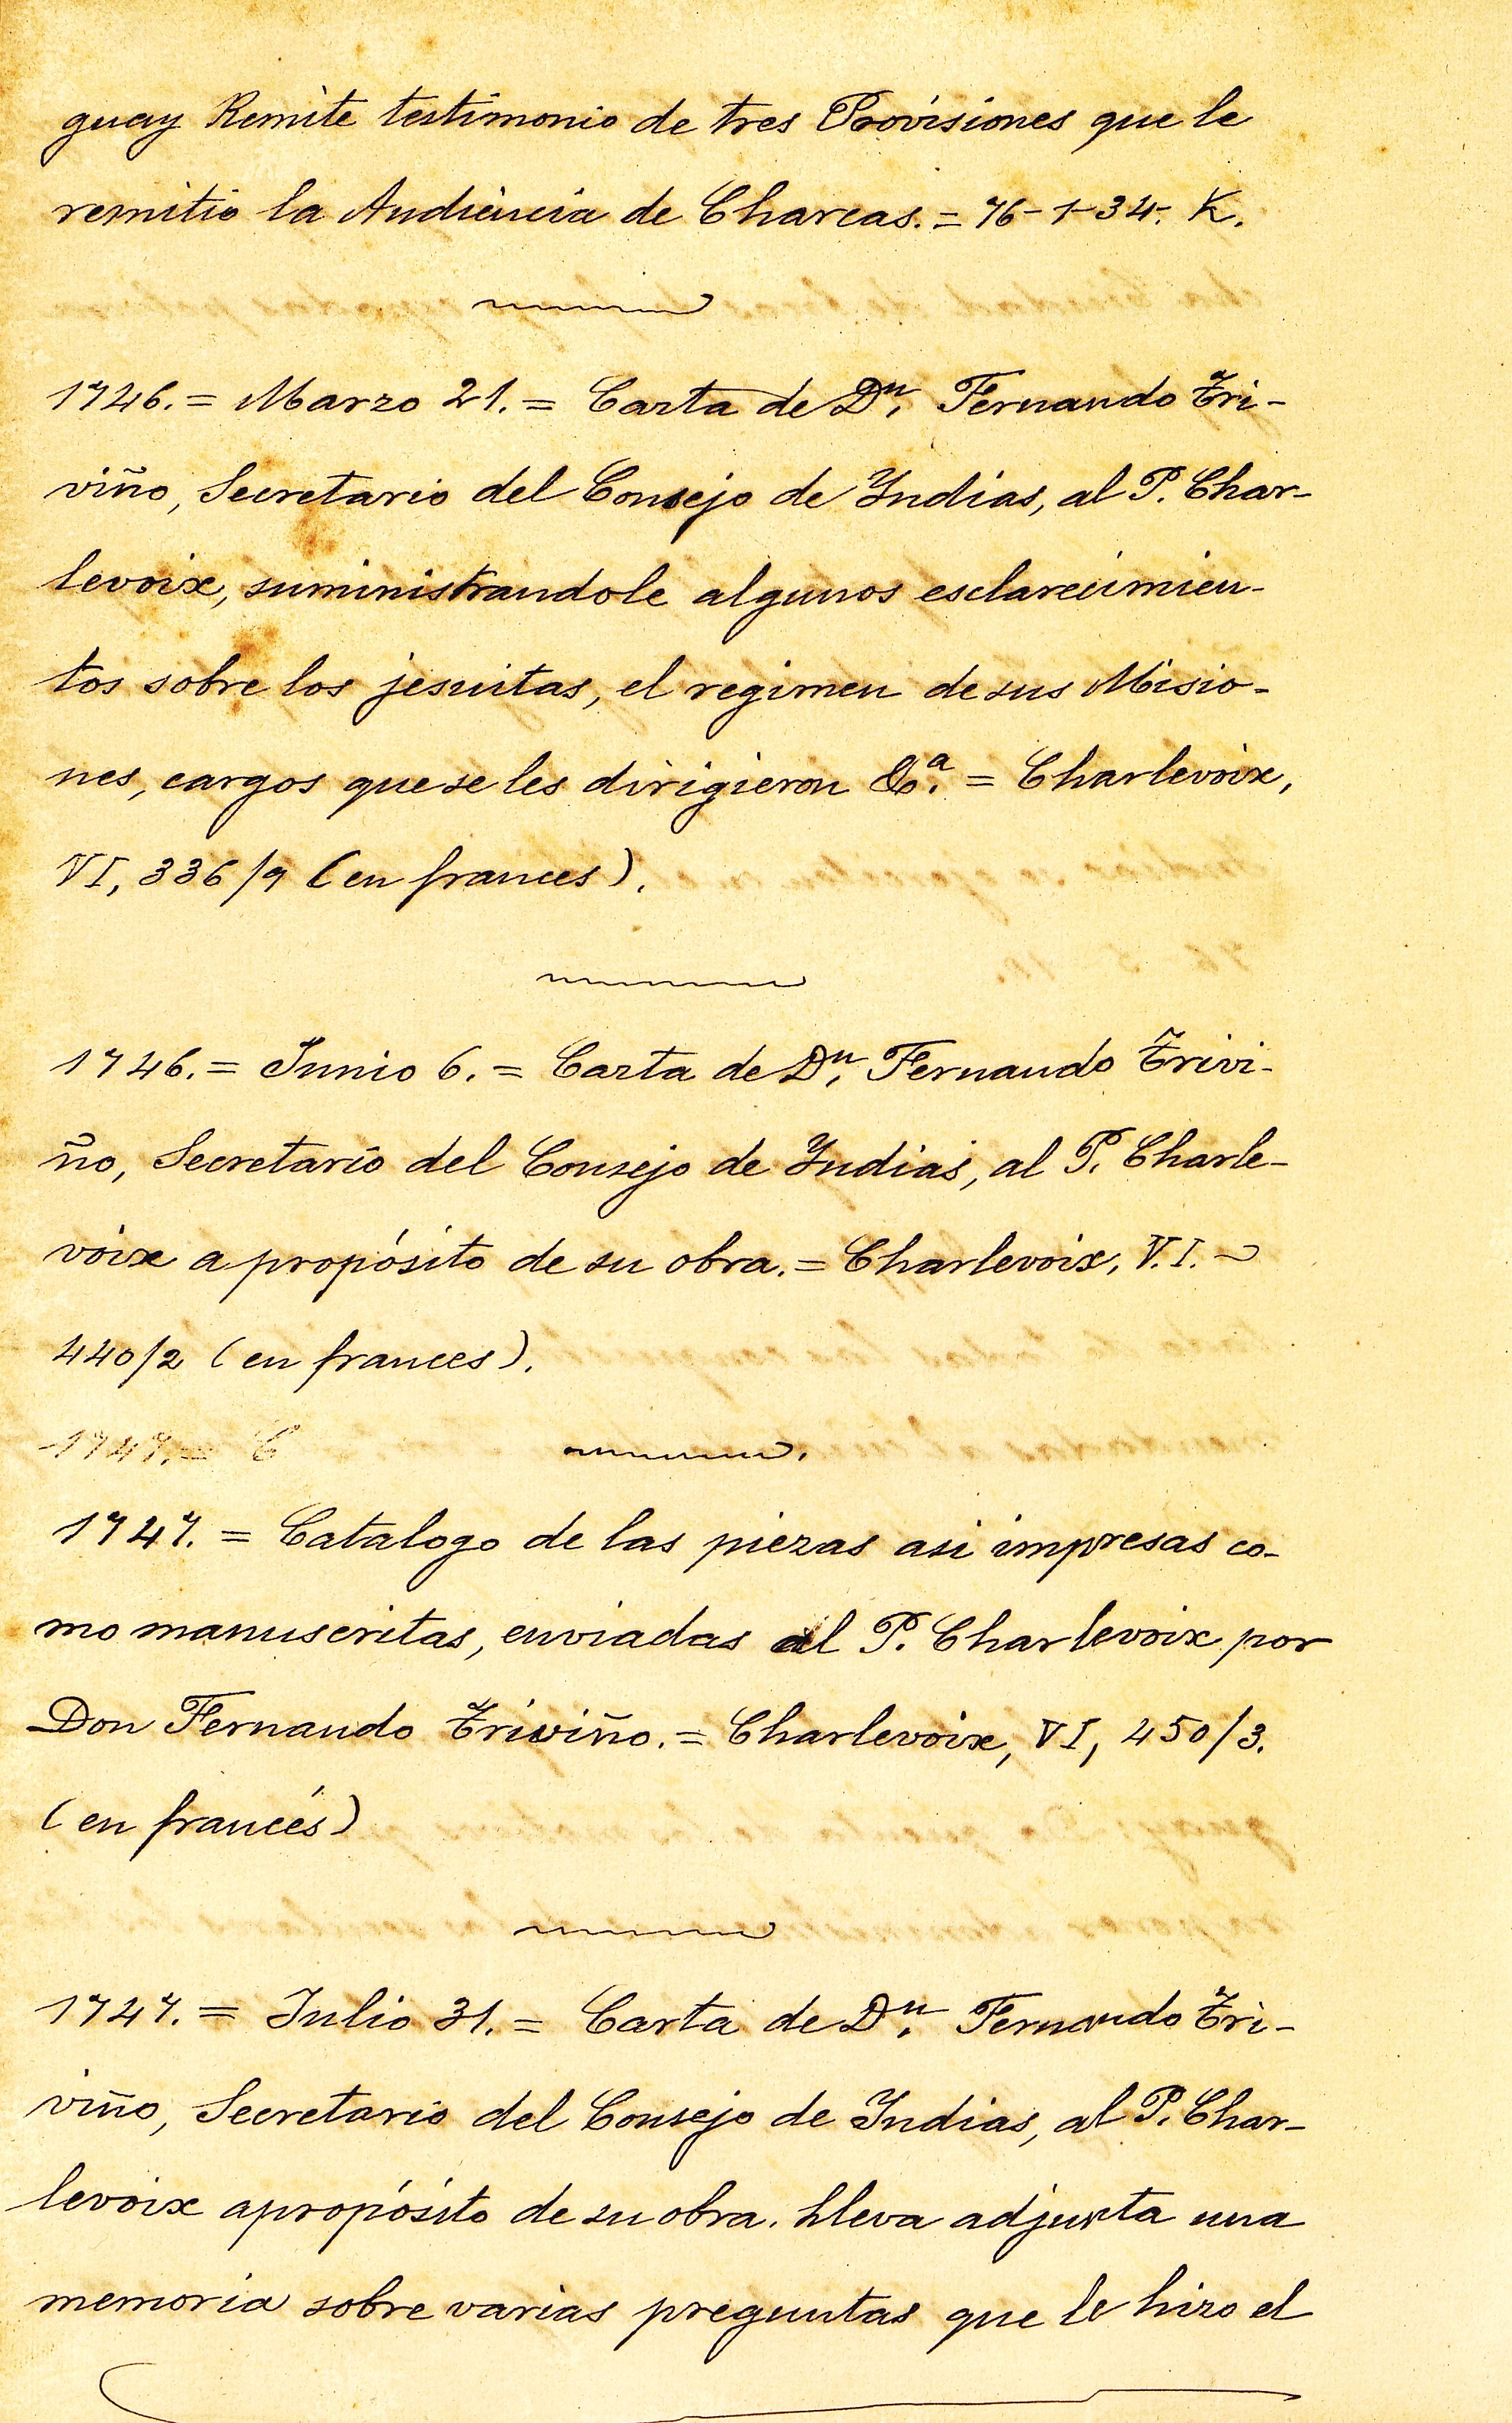 guay Remite testimonio de tres Provisiones que le
remitio la Audiencia de Charcas. = 76-1-34. K.
1746. = Marzo 21. = Carta de Dⁿ. Fernando Tri-
viño, Secretario del Consejo de Indias, al P. Char-
levoix, suministrandole algunos esclarecimien-
tos sobre los jesuitas, el regimen de sus Misio-
nes, cargos que se les dirigieron &ª. = Charlevoix,
VI, 336/9 (en frances).
1746. = Junio 6. = Carta de Dⁿ. Fernando Trivi-
ño, Secretario del Consejo de Indias, al P. Charle-
voix a propósito de su obra. = Charlevoix, V.I. -
440/2 (en frances).
1747. = C
1747. = Catalogo de las piezas asi impresas co-
mo manuscritas, enviadas al P. Charlevoix por
Don Fernando Triviño. = Charlevoix, VI, 450/3.
(en francés)
1747. = Julio 31. = Carta de Dⁿ. Fernando Tri-
viño, Secretario del Consejo de Indias, al P. Char-
levoix a propósito de su obra. Lleva adjunta una
memoria sobre varias preguntas que le hizo el